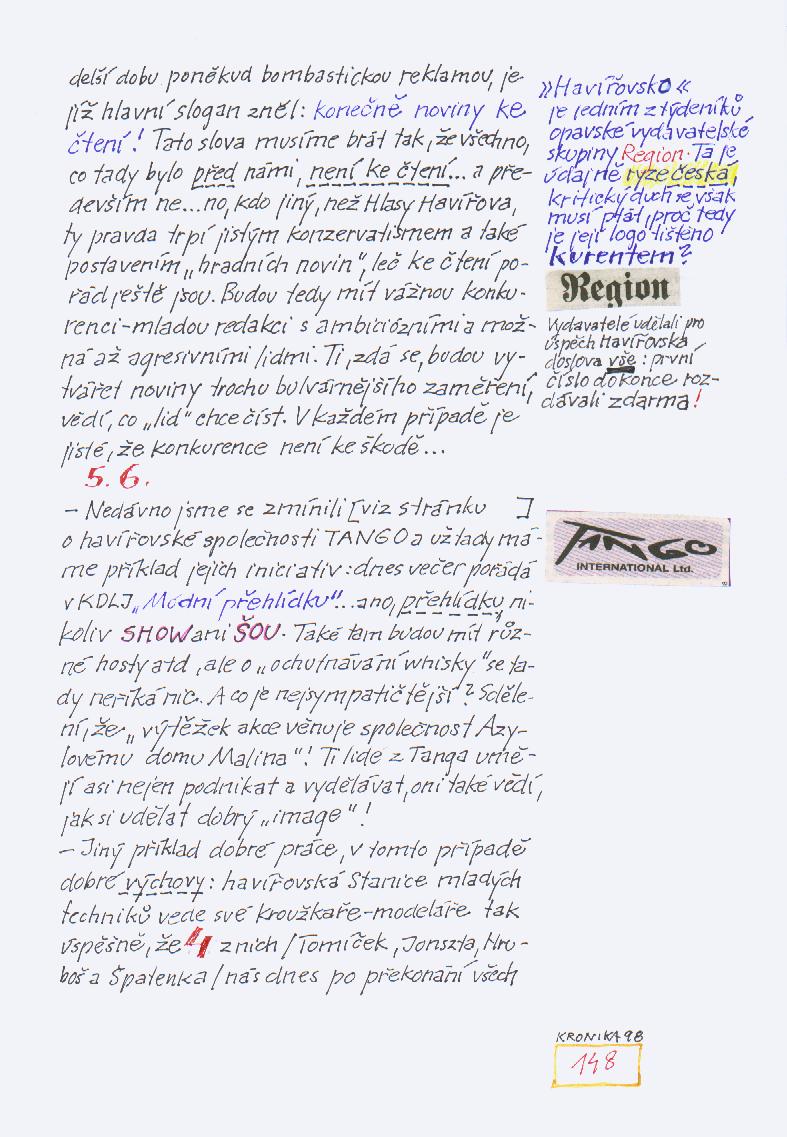 delší dobu poněkud bombastickou reklamou, je-
jíž hlavní slogan zněl: konečně noviny ke
čtení! Tato slova musíme brát tak, že všechno,
co tady bylo před námi, není ke čtení... a pře-
devším ne...no, kdo jiný, než Hlasy Havířova,
ty pravda trpí jistým konzervatismem a také
postavením „hradních novin", leč ke čtení po-
řád ještě jsou. Budou tedy mít vážnou konku-
renci-mladou redakci s ambiciózními a mož-
ná až agresivními lidmi. Ti, zdá se, budou vy-
tvářet noviny trochu bulvárnějšího zaměření,
vědí, co „lid" chce číst. V každém případě je
jisté, že konkurence není ke škodě...
5.6.
- Nedávno jsme se zmínili [viz stránku ]
o havířovské společnosti TANGO a už tady má-
me příklad jejich iniciativ: dnes večer pořádá
v KDLJ „Módní přehlídku"...ano, přehlídku, ni-
koliv SHOW ani ŠOU. Také tam budou mít růz-
né hosty atd, ale o „ochutnávání whisky" se ta-
dy neříká nic. A co je nejsympatičtější? Sděle-
ní, že „výtěžek akce věnuje společnost Azy-
lovému domu Malina"! Ti lidé z Tanga umě-
jí asi nejen podnikat a vydělávat, oni také vědí,
jak si udělat dobrý „image"!
- Jiný příklad dobré práce, v tomto případě
dobré výchovy: havířovská Stanice mladých
techniků vede své kroužkaře-modeláře tak
úspěšně, že 4 z nich /Tomíček, Jonszta, Hru-
boš a Špatenka/ nás dnes po překonání všech
»Havířovsko«
je jedním z týdeníků
opavské vydavatelské
skupiny Region. Ta je
údajně ryze česká,
kritický duch se však
musí ptát, proč tedy
je její logo tištěno
kurentem?
Region
Vydavatelé udělali pro
úspěch Havířovska
doslova vše: první
číslo dokonce roz-
dávali zdarma!
TANGO
INTERNATIONAL Ltd.
KRONIKA 98
148